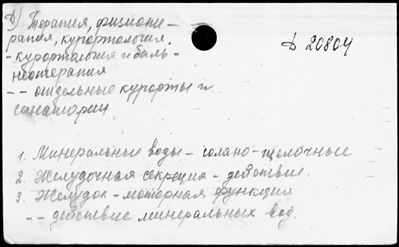 5) Терапия, физиоте-
рапия, курортология.
- курортология и баль-
неотерапия
-- отдельные курорты и
санатории
ъ 20804
1. Минеральные воды - соляно-щелочные
2. Желудочная секреция - действие.
3. Желудок - моторная функция
-- действие минеральных вод.